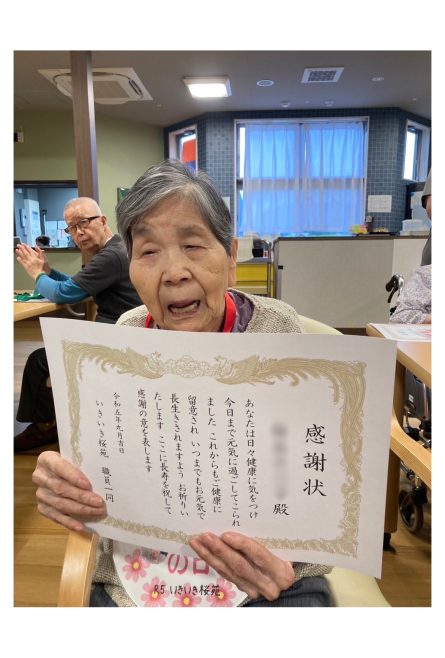 感謝状
殿
あなたは日々健康に気をつけ
今日まで元気に過ごしてこられ
ました これからもご健康に
留意され いつまでもお元気で
長生きされますよう お祈りい
たします ここに長寿を祝して
感謝の意を表します
令和五年九月吉日
いきいき桜苑 職員一同
の日
R5 いきいき桜苑